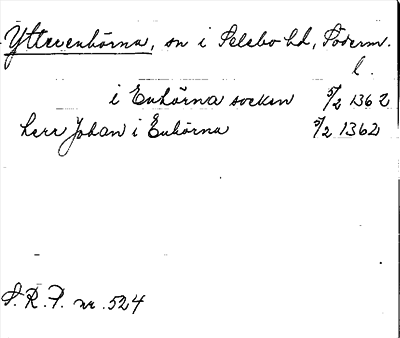 Ytterenhörna, sn i Selebo hd, Söderm.
l.
i Enhörna socken 5/2 1362
herr Johan i Enhörna 5/2 1362
S. R. P. nr. 524